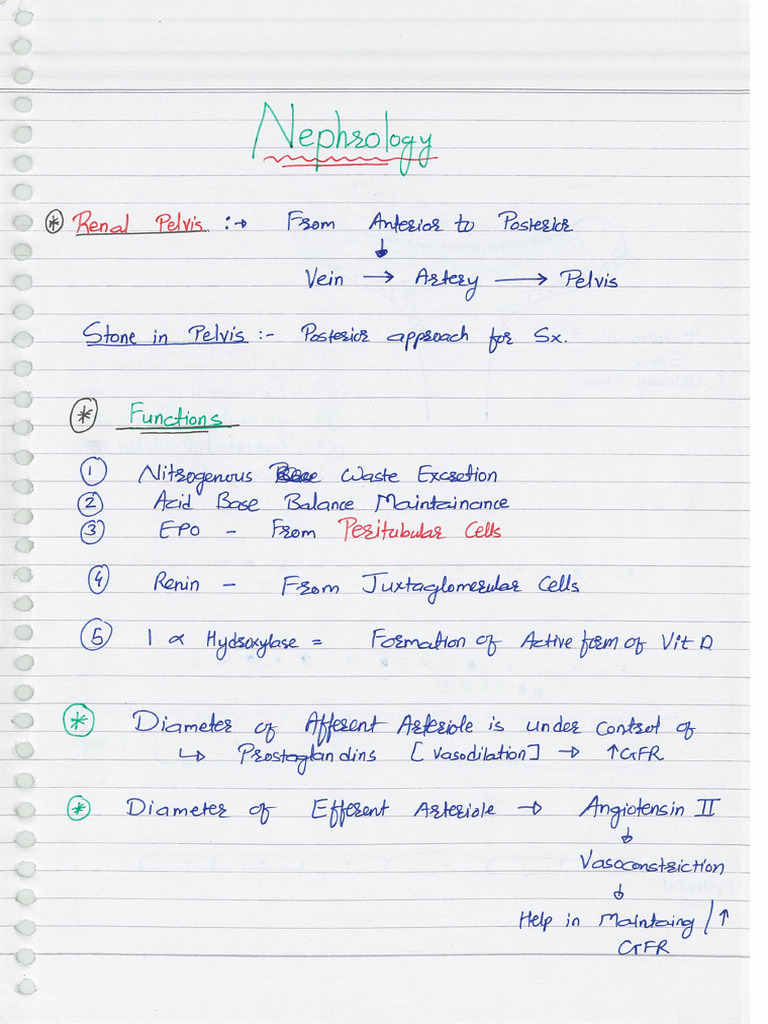 Nephrology
* Renal Pelvis :→ From Anterior to Posterior
↓
Vein → Artery → Pelvis
Stone in Pelvis :- Posterior approach for Sx.
* Functions
1 Nitrogenous Waste Excretion
2 Acid Base Balance Maintainance
3 EPO - From Peritubular Cells
4 Renin - From Juxtaglomerular Cells
5 1 α Hydroxylase = Formation of Active form of Vit D
* Diameter of Afferent Arteriole is under control of
↳ Prostaglandins [Vasodilation] → ↑GFR
* Diameter of Efferent Arteriole → Angiotensin II
↓
Vasoconstriction
↓
Help in Maintaing / ↑
GFR